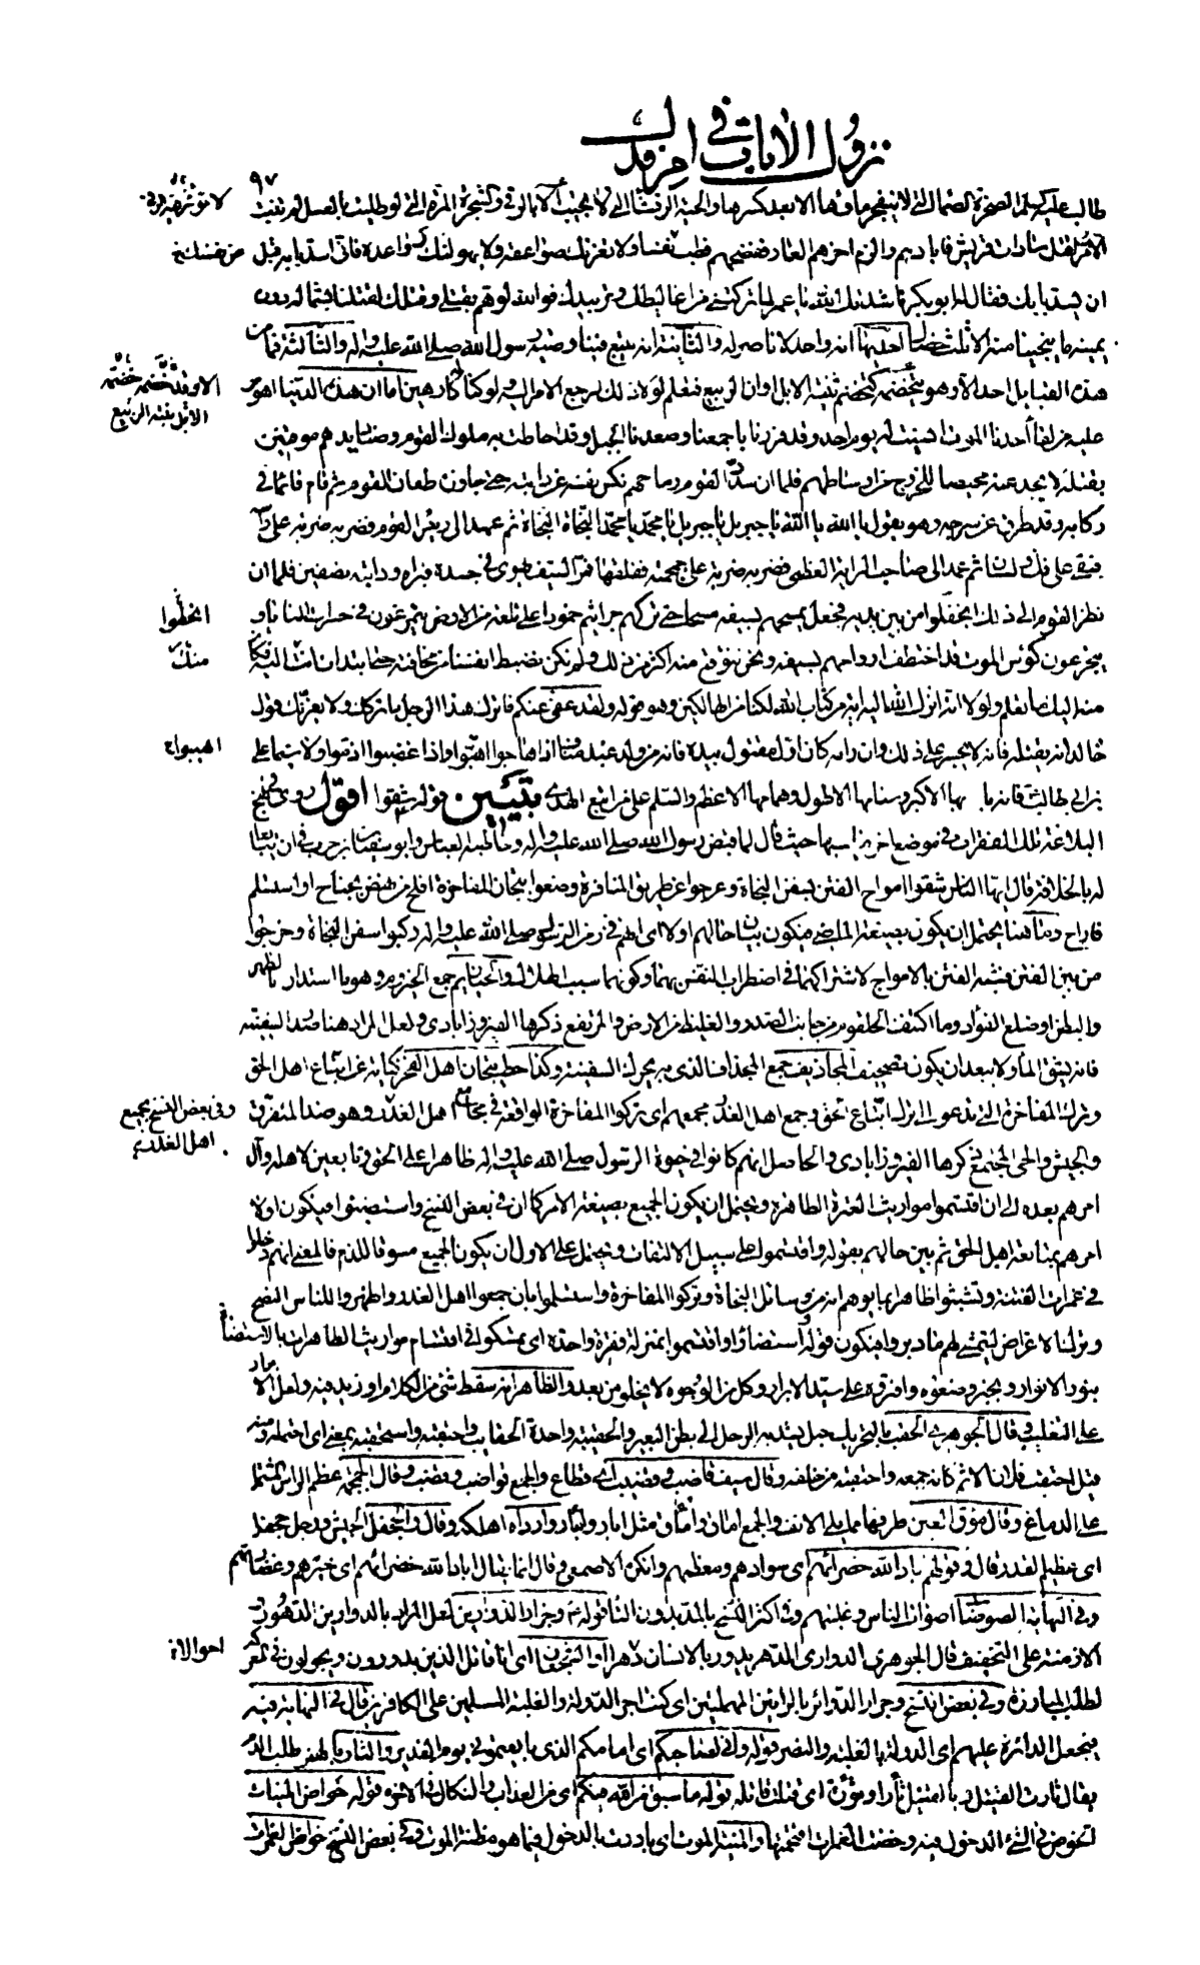 نزول الآيات في امر فدك
٩٧
طالب عليه كمثل الصخرة الصماء التي لا ينفجر ماؤها الا بعد كسرها والحية الرقشاء التي لا تجيب الا بالرقى والشجرة المرة التي لو طليت بالعسل لم تنبت
الا مرا قتل سادات قريش فابادهم والزم اخرهم العار ففضحهم فطب نفسا ولا تغرنك صواعقه ولا يهولنك رواعده فاني اسد بابه قبل
ان يسد بابك فقال له ابو بكر ناشدتك الله يا عمر لما تركتني من اغاليطك وتربيدك فوالله لو هم بقتلي وقتلك لقتلنا بشماله دون
يمينه ما ينجينا منه الا ثلث خصال احديها انه واحد لا ناصر له والثانية انه يتبع فينا وصية رسول الله صلى الله عليه وآله والثالثة فما من
هذه القبايل احد الا وهو يتخضمه كتخضم ثنية الابل اوان الربيع فتعلم لولا ذلك لرجع الامر اليه ولو كنا له كارهين اما ان هذه الدنيا اهون
عليه من لقاء احدنا الموت انسيت له يوم احد وقد فررنا باجمعنا وصعدنا الجبل وقد احاطت به ملوك القوم وصناديدهم موقنين
بقتله لا يجد عنه محيصا للخروج من اوساطهم فلما ان سدد القوم رماحهم نكس نفسه عن دابته حتى جاوزه طعان القوم ثم قام قائما في
ركابه وقد طرق عن سرجه وهو يقول يا الله يا الله يا جبريل يا جبريل يا محمد يا محمد النجاة النجاة ثم عمد الى رئيس القوم فضربه ضربة على راسه
فبقي على فك ولسان ثم عمد الى صاحب الراية العظمى فضربه ضربة على جمجمته ففلقها فمر السيف يهوي في جسده فبراه ودابته بنصفين فلما ان
نظر القوم الى ذلك انجفلوا من بين يديه فجعل يمسحهم بسيفه مسحا حتى تركهم جراثيم خمودا على تلعة من الارض يتمرغون في حسرات المنايا و
يتجرعون كؤس الموت قد اختطف ارواحهم بسيفه ونحن نتوقع منه اكثر من ذلك ولم نكن نضبط انفسنا من مخافته حتى ابتدات انت اليه فكان
منه اليك ما تعلم ولولا انه انزل الله اليه آية من كتاب الله لكنا من الهالكين وهو قوله ولقد عفى عنكم فاترك هذا الرجل ما تركك ولا يغرنك قول
خالد انه يقتله فانه لا يجسر على ذلك وان رامه كان اول مقتول بيده فانه من ولد عبد مناف اذا هاجوا اهيبوا واذا غضبوا ادموا ولا سيما علي
بن ابي طالب فانه بابها الاكبر وسنامها الاطول وهمامها الاعظم والسلم على من اتبع الهدى تبيين قوله شقوا اقول روى في نهج
البلاغة تلك الفقرات في موضع آخر يناسبها حيث قال لما قبض رسول الله صلى الله عليه وآله وخاطبه العباس وابو سفيان بن حرب في ان يبايعا
له بالخلافة قال ايها الناس شقوا امواج الفتن بسفن النجاة وعرجوا عن طريق المنافرة وضعوا تيجان المفاخرة افلح من نهض بجناح او استسلم
فاراح وما هنا يحتمل ان يكون بصيغة الماضي فيكون بيان حالهم اولا اي انهم في زمن الرسول صلى الله عليه وآله ركبوا سفن النجاة وخرجوا
من بين الفتن فشبه الفتن بالامواج لاشتراكهما في اضطراب النفس بهما وكونهما سبب الهلاك والحيازيم جمع الحيزوم وهو ما استدار بالظهر
والبطن او ضلع الفؤاد وما اكتنف الحلقوم من جانب الصدر والغليظ من الارض والمرتفع ذكرها الفيروزابادي ولعل المراد هنا صدر السفينة
فانه يشق الماء ولا يبعد ان يكون تصحيف المجاذيف جمع المجذاف الذي به يحرك السفينة وكذا حط تيجان اهل الفخر كناية عن اتباع اهل الحق
وترك المفاخرة التي تدعو الى ترك اتباع الحق وجمع اهل الغدر مجمعهم اي تركوا المفاخرة الواقعة في مجامع اهل الغدر وهو ضد المتفرق
والجيش والحي المجتمع ذكرها الفيروزابادي والحاصل انهم كانوا في حيوة الرسول صلى الله عليه وآله ظاهرا على الحق وتابعين لاهله وآل
امرهم بعده الى ان اقتسموا مواريث العترة الطاهرة ويحتمل ان يكون الجميع بصيغة الامر كما ان في بعض النسخ واستضيئوا فيكون اولا
امرهم بمتابعة اهل الحق ثم بين حالهم بقوله واقتسموا على سبيل الالتفات ويحتمل على الاول ان يكون الجميع مسوقا للذم فالمعنى انهم دخلوا
في غمرات الفتنة وتشبثوا ظاهرا بما يوهم انه من وسائل النجاة وتركوا المفاخرة واستسلموا بان جمعوا اهل الغدر واظهروا للناس النصح
وترك الاغراض ليتمشى لهم ما دبروا فيكون قوله واستضاؤا واقتسموا بمنزلة فقرة واحدة اي تمسكوا في اقتسام مواريث الطاهرات بالاستضاءة
بنور الانوار وبخبر وضعوه وافتروه على سيد الابرار وكل من الوجوه لا يخلو من بعد والظاهر انه سقط شئ من الكلام او زيد فيه ولعل الايراد
على التغليب وقال الجوهري الحقب بالتحريك حبل يشد به الرحل الى بطن البعير والحقيبة واحدة الحقايب واحتقبه واستحقبه بمعنى اي احتمله ومنه
قيل احتقب فلان الاثم كانه جمعه واحتقبه من خلفه وقال سيف قاضب وقضيب اي قطاع والجمع قواضب وقضب وقال الجمجمة عظم الراس المشتمل
على الدماغ وقال مؤق العين طرفها مما يلي الانف والجمع اماق وآماق مثل آبار وابار وارداه اهلكه وقال والجحفل الجيش ورجل جحفل
اي عظيم القدر قال وقولهم اباد الله خضراءهم اي سوادهم ومعظمهم وانكره الاصمعي وقال انما يقال اباد الله غضراءهم اي خيرهم وغضارتهم
وفي النهاية الضوضا اصوات الناس وغلبتهم وفي اكثر النسخ بالمد بدون التاء قوله وجرار الدوارين لعل المراد بالدوارين الدهور و
الازمنة على التخفيف قال الجوهري الدواري الدهر يدور بالانسان دهرا او الشجعان اي انا قاتل الذين يدورون ويجولون في المعركة
لطلب المبارزة وفي بعض النسخ وجرار الدوائر بالرائين المهملتين اي كنت اجر الدولة والغلبة للمسلمين على الكافرين قال في النهاية فيه
فيجعل الدائرة عليهم اي الدولة بالغلبة والنصر قوله واني لصاحبكم اي امامكم الذي بايعتموني يوم الغدير والثار بالهمز طلب الدم
يقال ثارت القتيل وبالقتيل ثأرا وثؤرة اي قتلت قاتله قوله ما سبق من الله فيكم اي من العذاب والنكال في الآخرة قوله خواض المنيات
الخوض في الشئ الدخول فيه وخضت الغمرات اقتحمتها والمنية الموت اي بادرت بالدخول فيما هو مظنة الموت وفي بعض النسخ خواض الغمرات
من نفسك خ
الا وقد تخضمه خضمة
الابل نبتة الربيع
انحطوا
منك
اهيبوا خ
وفي بعض النسخ بجميع
اهل الغدر